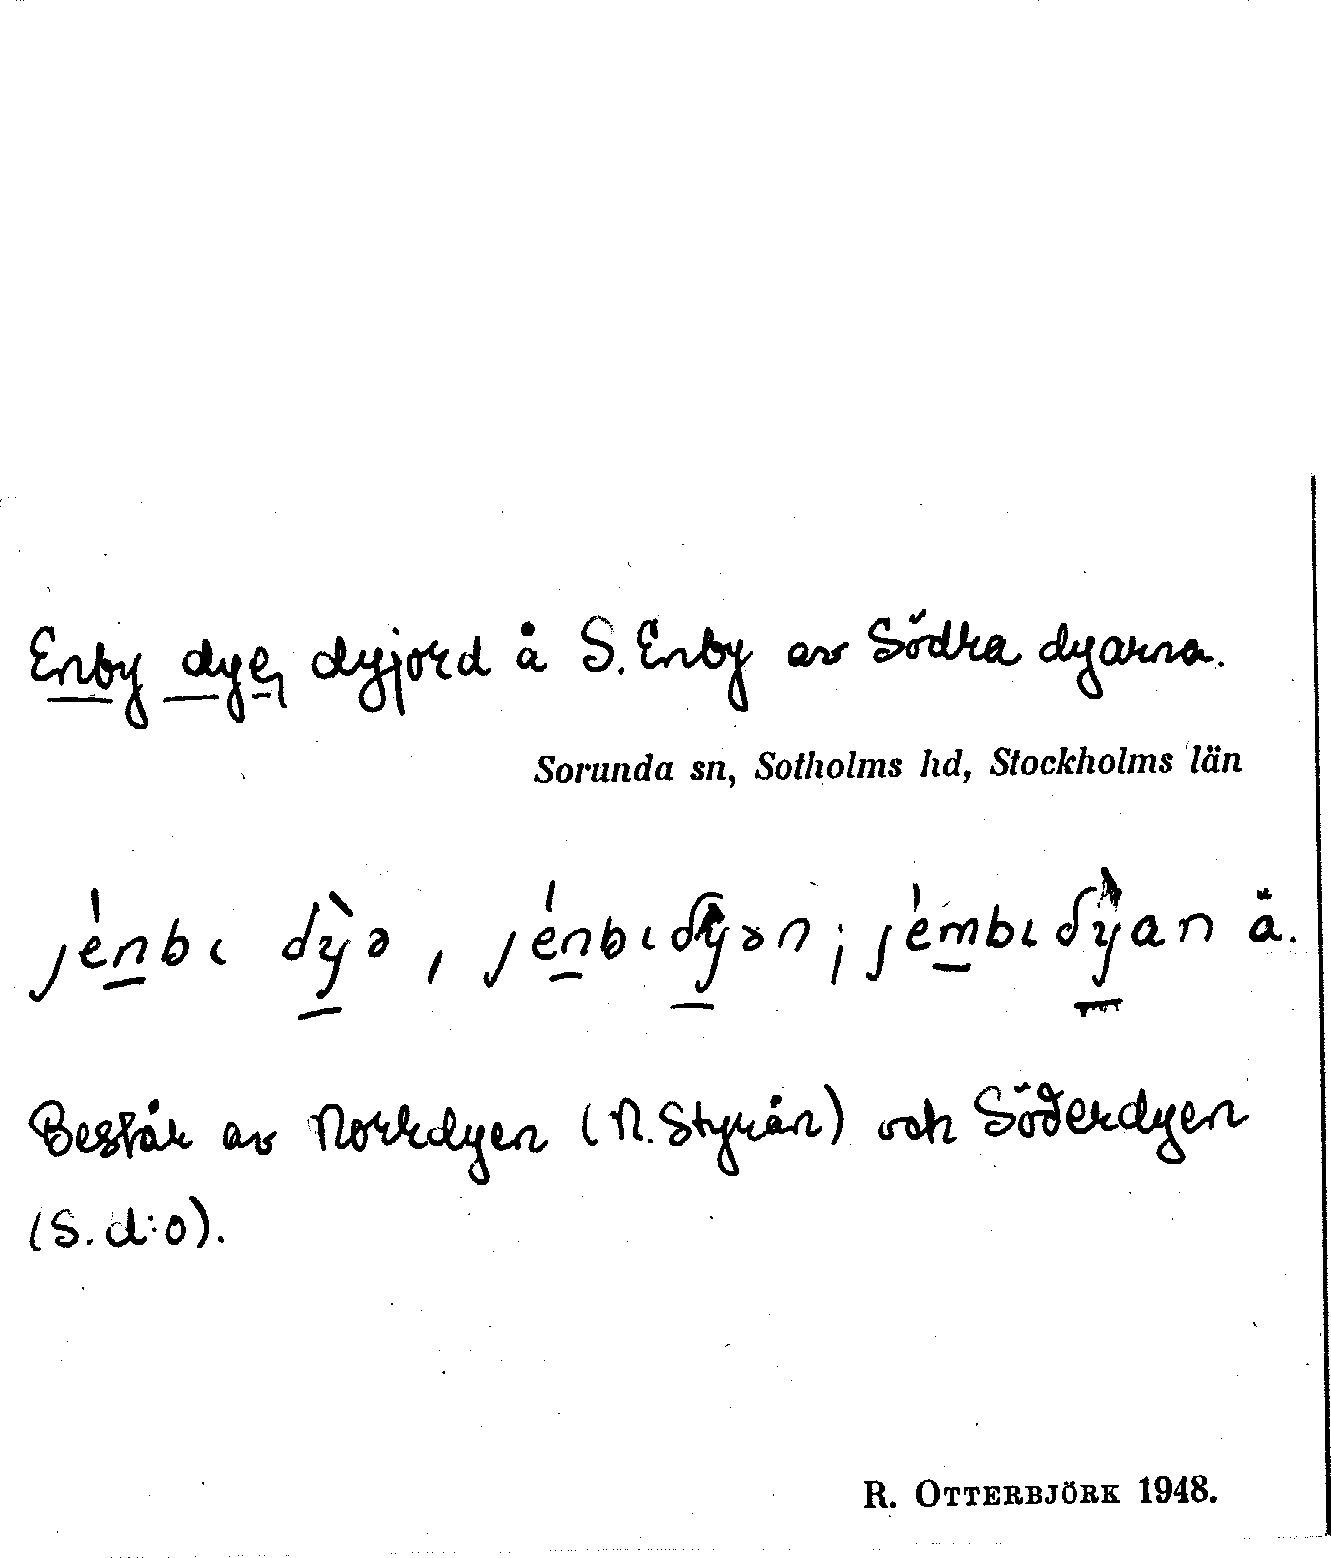 Enby dye, dyjord å S. Enby av Södra dyarna.
Sorunda sn, Sotholms hd, Stockholms län
jénbɩ dỳə, jénbɩdỳən; jémbɩdỳan ä.
Består av Norrdyen (N. Styrån) och Söderdyen
(S. d:o).
R. OTTERBJÖRK 1948.